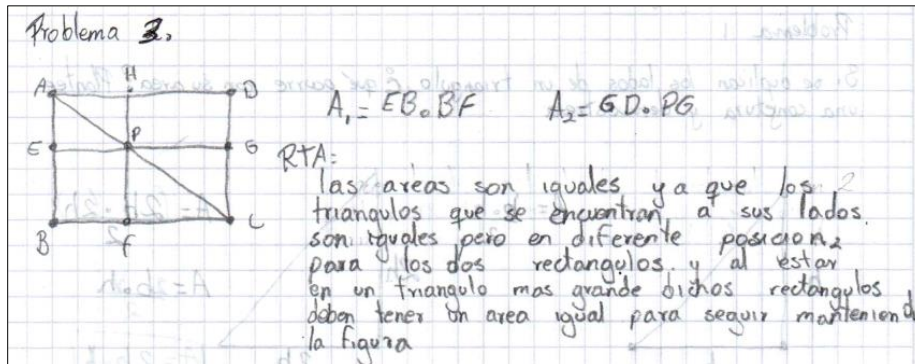 Problema 3.
H
A D
P
E G
B F C
A₁ = EB . BF A₂ = GD . PG
RTA:
las areas son iguales ya que los
triangulos que se encuentran a sus lados.
son iguales pero en diferente posicion
para los dos rectangulos y al estar
en un triangulo mas grande dichos rectangulos
deben tener un area igual para seguir manteniend
la figura